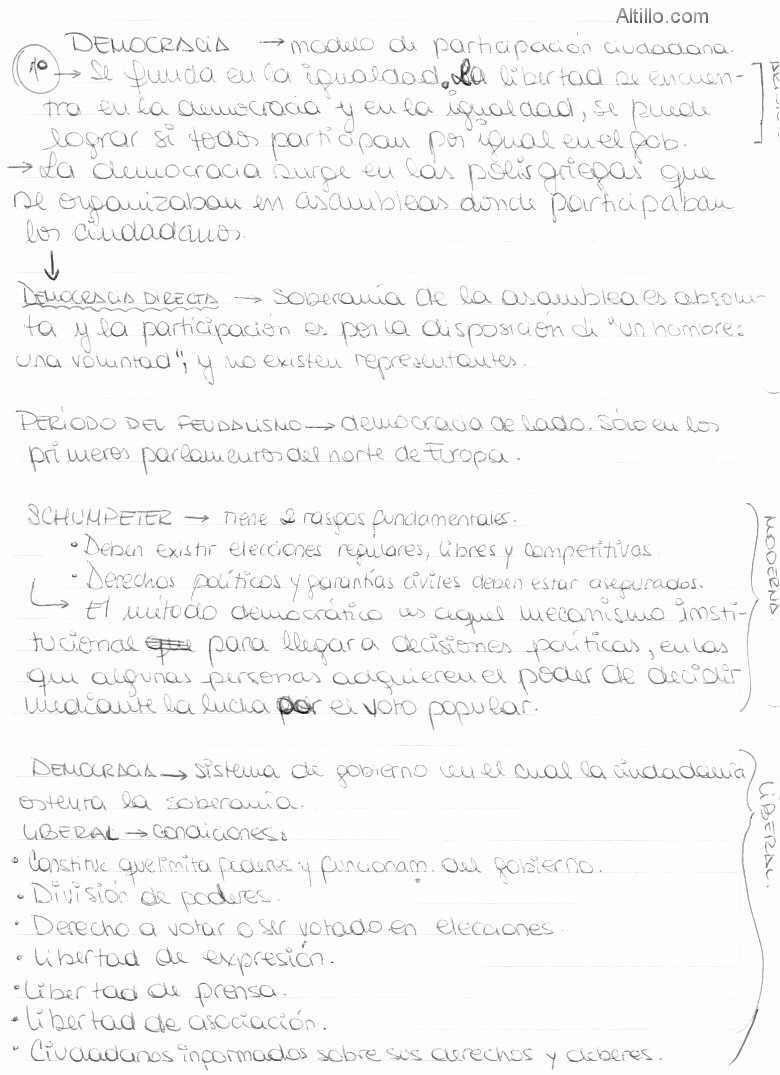 Altillo.com
DEMOCRACIA → modelo de participación ciudadana.
1º → Se funda en la igualdad. La libertad se encuen-
tra en la democracia y en la igualdad, se puede
lograr si todos participan por igual en el gob.
→ La democracia surge en las polis griegas que
se organizaban en asambleas donde participaban
los ciudadanos.
↓
DEMOCRACIA DIRECTA → Soberanía de la asamblea es absolu-
ta y la participación es por la disposición de "un hombre:
una voluntad", y no existen representantes.
PERÍODO DEL FEUDALISMO → democracia de lado. Sólo en los
primeros parlamentos del norte de Europa.
SCHUMPETER → tiene 2 rasgos fundamentales.
• Deben existir elecciones regulares, libres y competitivas.
• Derechos políticos y garantías civiles deben estar asegurados.
→ El método democrático es aquel mecanismo insti-
tucional para llegar a decisiones políticas, en las
que algunas personas adquieren el poder de decidir
mediante la lucha por el voto popular.
MODERNA
DEMOCRACIA → sistema de gobierno en el cual la ciudadanía
ostenta la soberanía.
LIBERAL → Condiciones:
• Constituc que limita poderes y funcionam. del gobierno.
• División de poderes.
• Derecho a votar o ser votado en elecciones.
• Libertad de expresión.
• Libertad de prensa.
• Libertad de asociación.
• Ciudadanos informados sobre sus derechos y deberes.
LIBERAL.